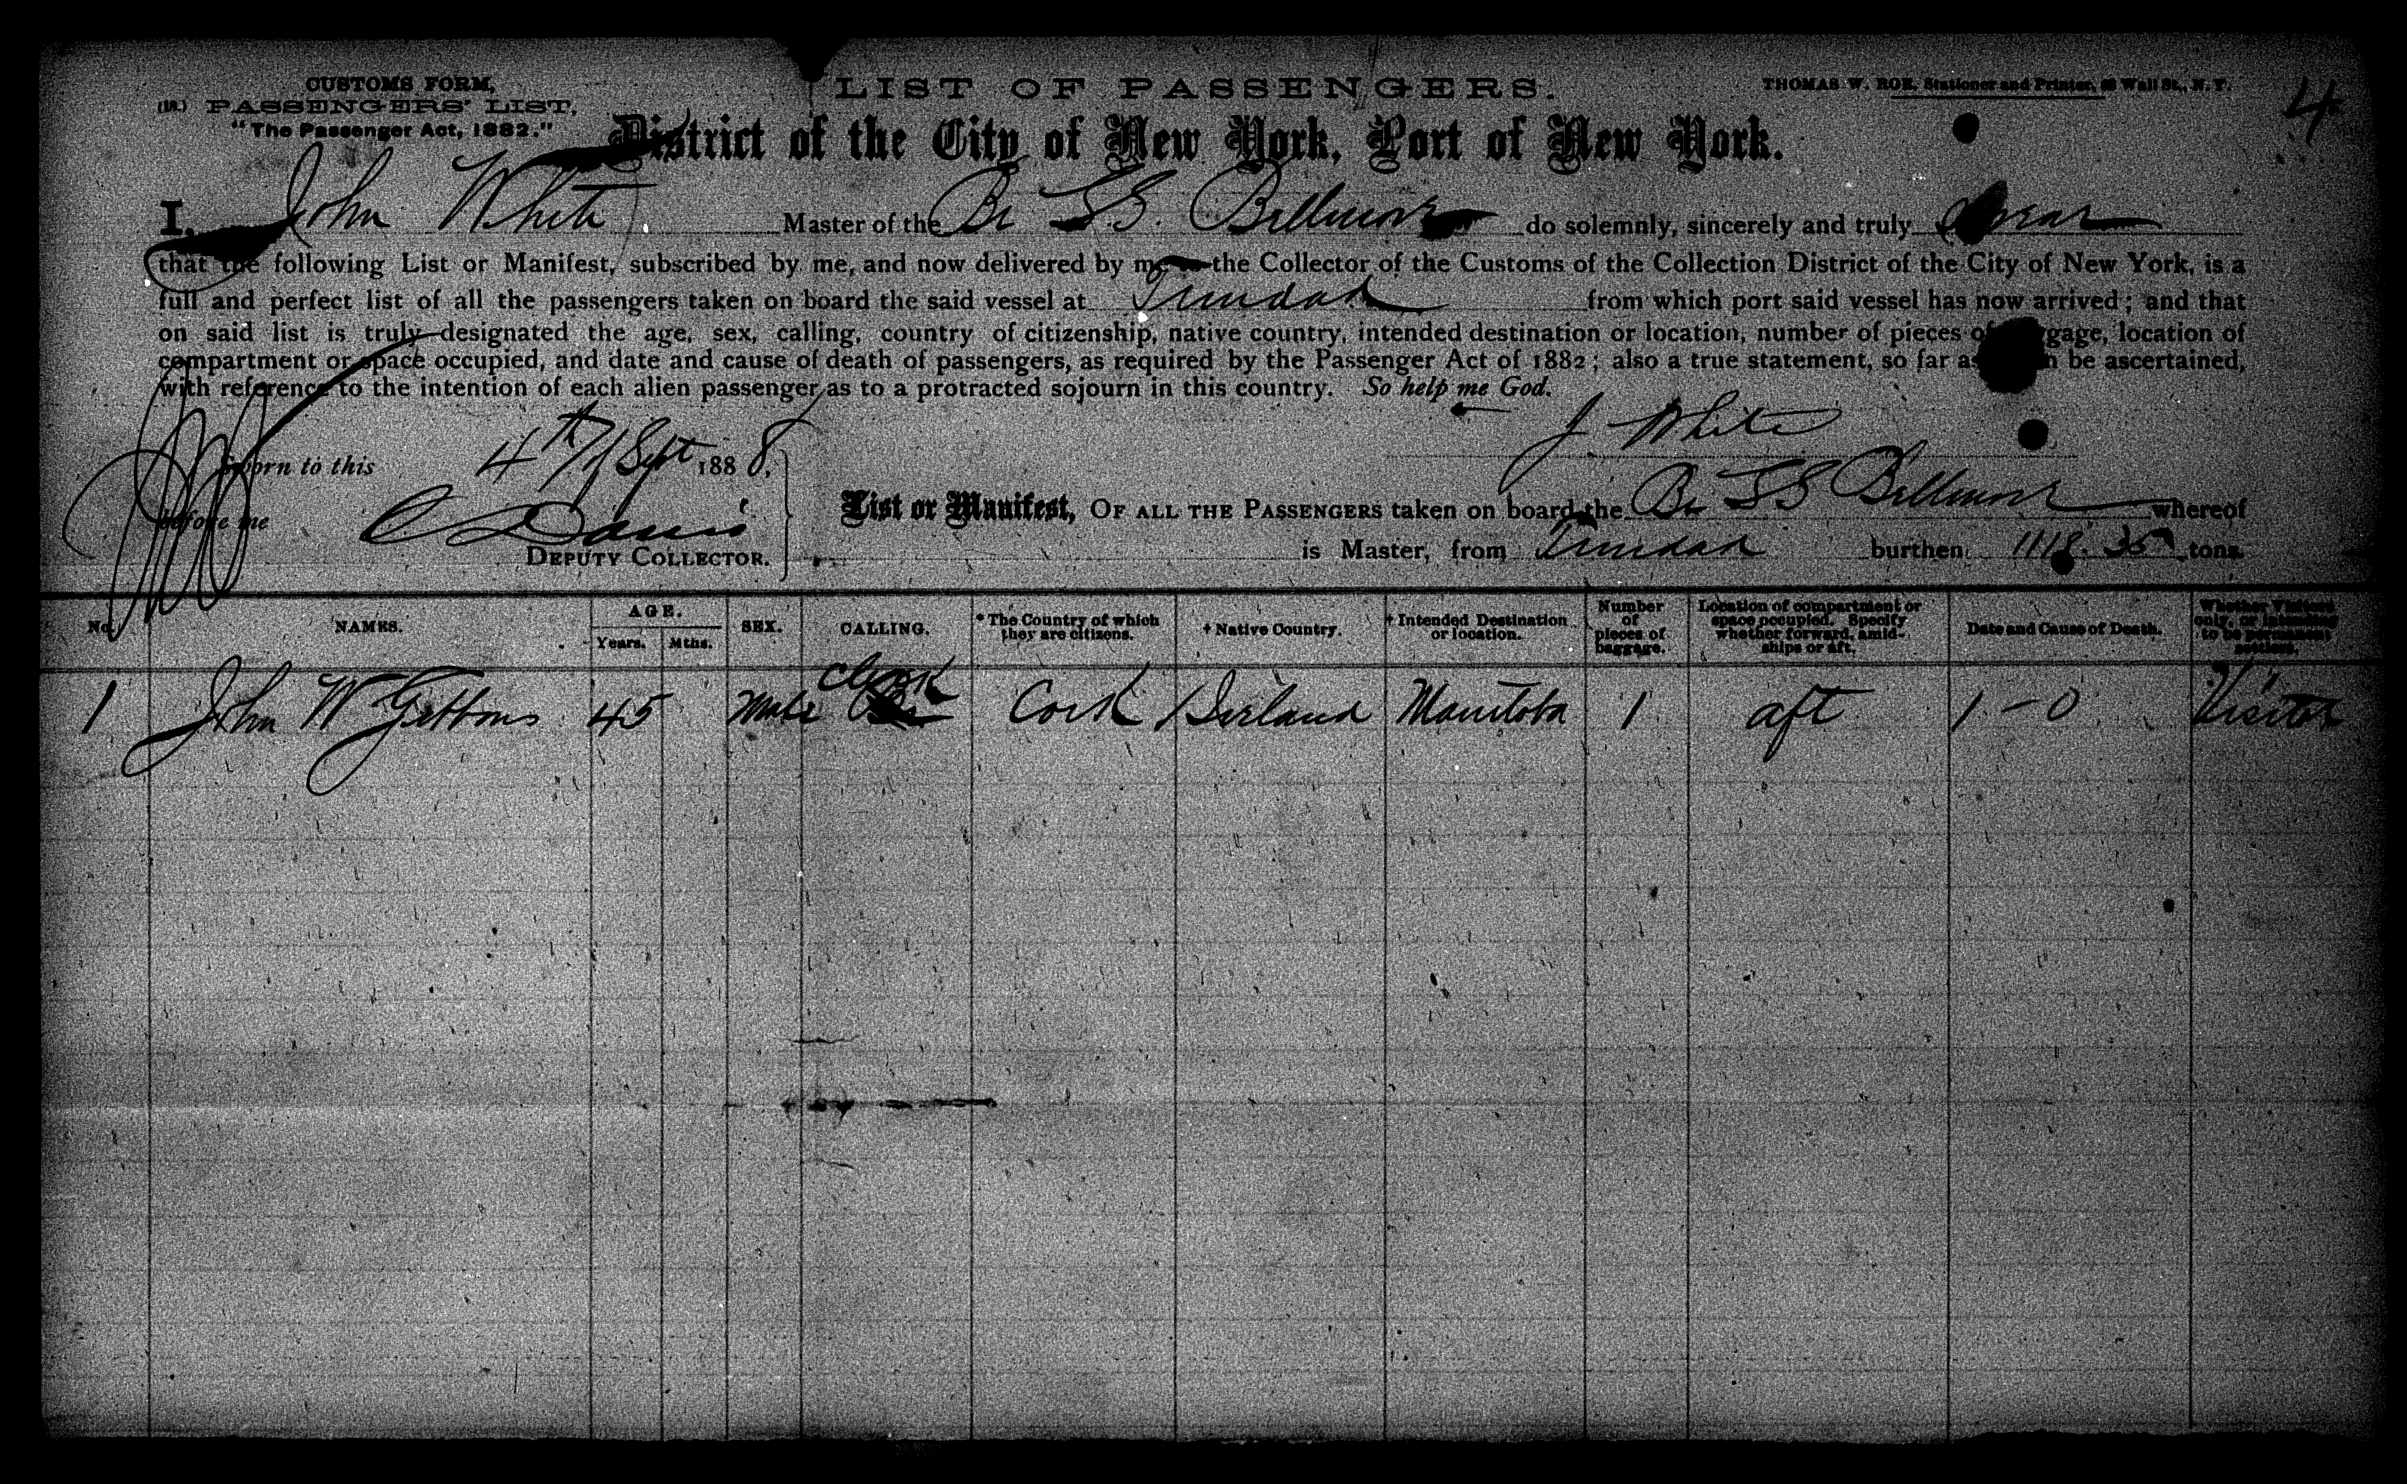 CUSTOMS FORM,
PASSENGERS' LIST,
"The Passenger Act, 1882."
LIST OF PASSENGERS.
THOMAS W. ROE, Stationer and Printer, Wall St., N. Y.
4
District of the City of New York, Port of New York.
I, John White Master of the Br SS. Bellmore do solemnly, sincerely and truly swear
that the following List or Manifest, subscribed by me, and now delivered by me to the Collector of the Customs of the Collection District of the City of New York, is a
full and perfect list of all the passengers taken on board the said vessel at Trinidad from which port said vessel has now arrived; and that
on said list is truly designated the age, sex, calling, country of citizenship, native country, intended destination or location, number of pieces of baggage, location of
compartment or space occupied, and date and cause of death of passengers, as required by the Passenger Act of 1882; also a true statement, so far as can be ascertained,
with reference to the intention of each alien passenger as to a protracted sojourn in this country. So help me God.
J. White
Sworn to this 4th Sept 1888,
before me C Davis
DEPUTY COLLECTOR.
List or Manifest, OF ALL THE PASSENGERS taken on board the Br SS Bellmore whereof
is Master, from Trinidad burthen 1118.35 tons.
No. NAMES. AGE. Years. Mths. SEX. CALLING. * The Country of which they are citizens. † Native Country. † Intended Destination or location. Number of pieces of baggage. Location of compartment or space occupied. Specify whether forward, amidships or aft. Date and Cause of Death. Whether Visitors only, or intending to be permanent settlers.
1 John W Gibbons 45 Male Clerk Cork Ireland Manitoba 1 aft 1-0 Visitor